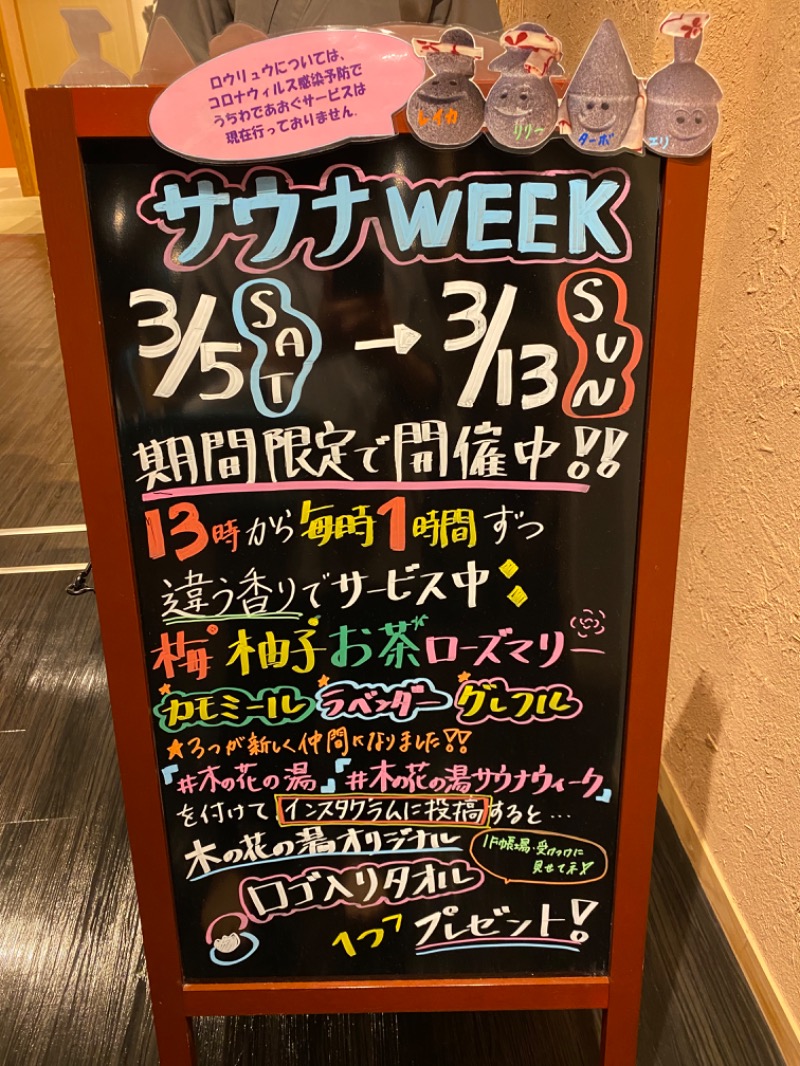 ロウリュウについては、
コロナウィルス感染予防で
うちわであおぐサービスは
現在行っておりません。
レイカ
リリー
ターボ
エリ
サウナWEEK
3/5 SAT → 3/13 SUN
期間限定で開催中!!
13時から毎時1時間ずつ
違う香りでサービス中
梅 柚子 お茶 ローズマリー
カモミール ラベンダー グレフル
★3つが新しく仲間になりました!!
「#木の花の湯」「#木の花の湯サウナウィーク」
を付けて インスタグラムに投稿すると…
木の花の湯オリジナル
1F帳場・受けつけに
見せてネ♪
ロゴ入りタオル
1つ プレゼント!